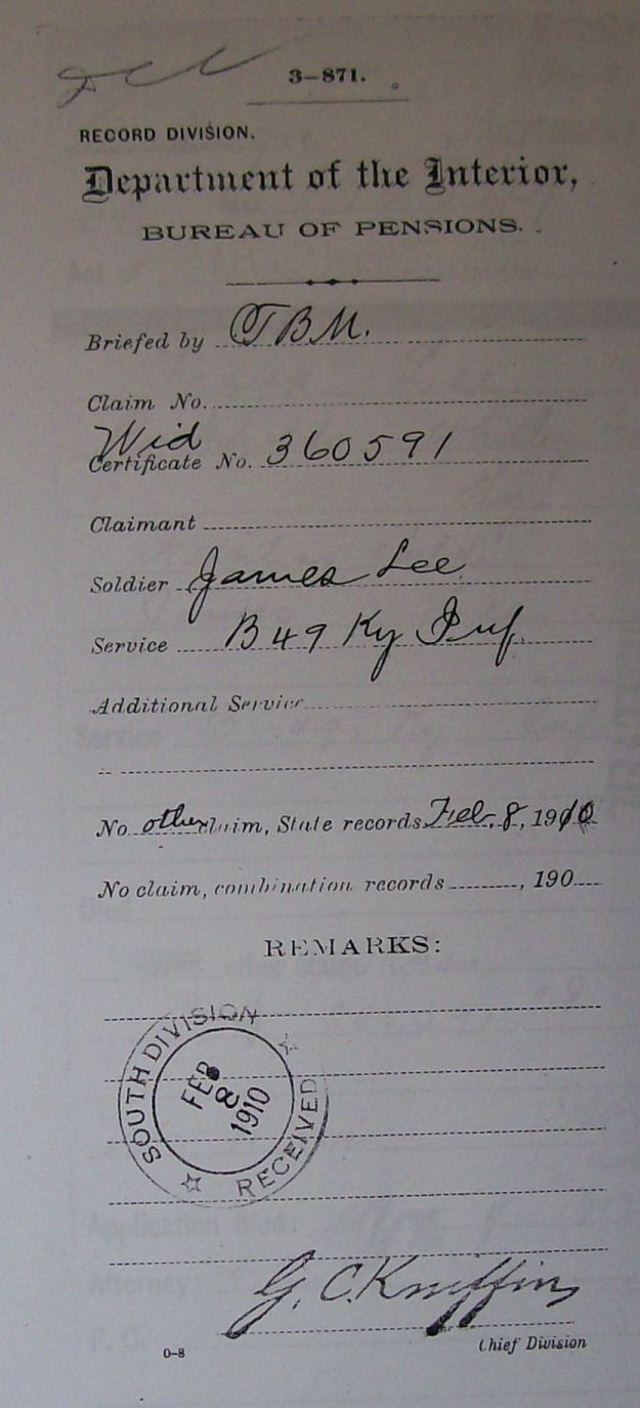 3-871.
RECORD DIVISION.
Department of the Interior,
BUREAU OF PENSIONS.
Briefed by J B M.
Claim No.
Wid
Certificate No. 360591
Claimant
Soldier James Lee
Service B 49 Ky Inf.
Additional Service
No other claim, State records Feb. 8, 1910
No claim, combination records, 190
REMARKS:
SOUTH DIVISION
FEB
8
1910
RECEIVED
G. C. Kniffin
Chief Division
0-8